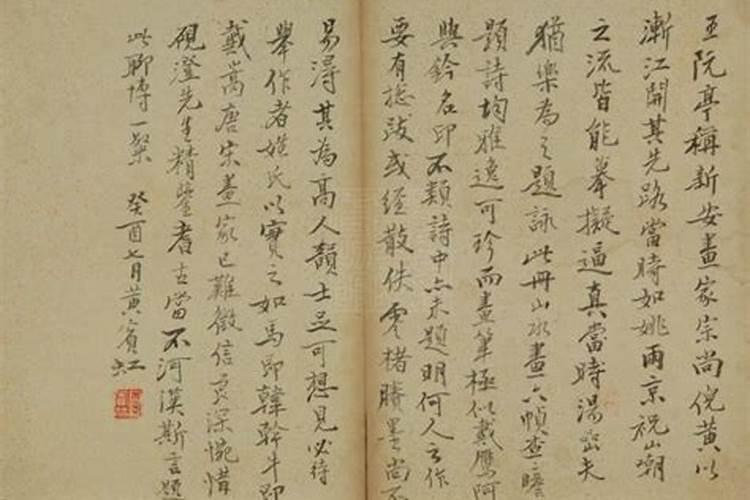 王阮亭稱新安畫家崇尚倪黃以
漸江開其先路當時如姚雨京祝山嘲
之流皆能摹擬逼真當時湯岩夫
猶樂為之題詠此冊山水畫六幀查二瞻
題詩均雅逸可珍而畫筆極似戴鷹阿
與鈐名印不類詩中亦未題明何人之作
要有摠跋或經散佚零楮賸墨尚不
易淂其為高人韻士足可想見必待
舉作者姓氏以實之如馬即韓幹牛即
戴嵩唐宋畫家已難徵信良深惋惜
硯澄先生精鑒耆古當不河漢斯言題
此聊博一粲 癸酉七月黃賓虹